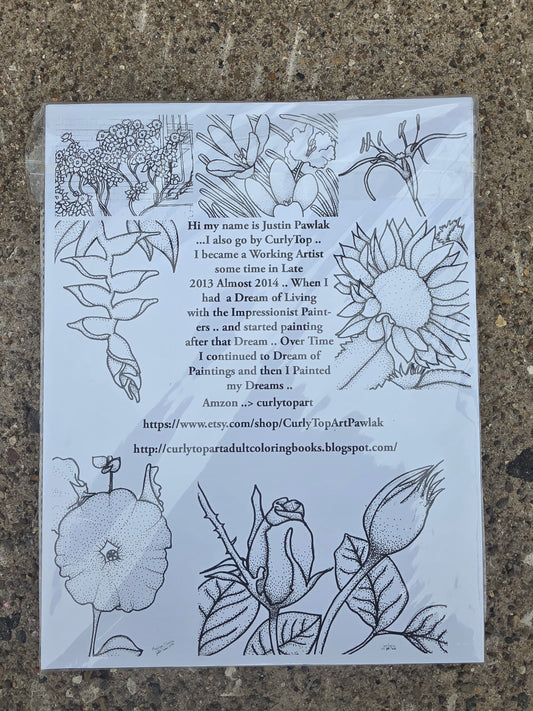 Hi my name is Justin Pawlak
...I also go by CurlyTop ..
I became a Working Artist
some time in Late
2013 Almost 2014 .. When I
had a Dream of Living
with the Impressionist Paint-
ers .. and started painting
after that Dream .. Over Time
I continued to Dream of
Paintings and then I Painted
my Dreams ..
Amzon ..> curlytopart
https://www.etsy.com/shop/CurlyTopArtPawlak
http://curlytopartadultcoloringbooks.blogspot.com/